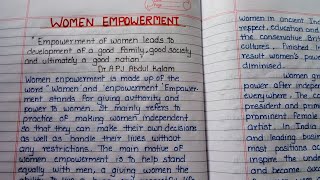 WOMEN EMPOWERMENT
"Empowerment of women leads to
development of a good family, good society
and ultimately a good nation"
Dr. A.P.J Abdul Kalam
Women enpowerment is made up of the
word "Women' and 'empowerment' Empower-
ment stands for giving authority and
power to women. It mainly refers to
practice of making women independent
so that they can make their own decisions
as well as handle their lives without
any restrictions. The main motive of
women empowerment is to help stand
equally with men, a giving women the
women in ancient In
respect, education and
the conservative Brit
cultures. Punished in
result women's powe
diminised.
Women
power after indepen
everywhere. The co
president and prime
prominent Female
artist. In India
and leading busine
most positions ac
inspire the und
and become